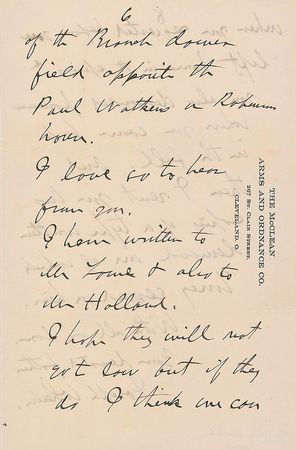 6
of the Branch down
field opposite the
Paul Watkins or Robinson
house.
I love so to hear
from you.
I have written to
Mr Lowe & also to
Mr Holland.
I hope they will not
get low but if they
do I think we can
THE McCLEAN
ARMS AND ORDNANCE CO.
207 St. Clair Street,
CLEVELAND, O.